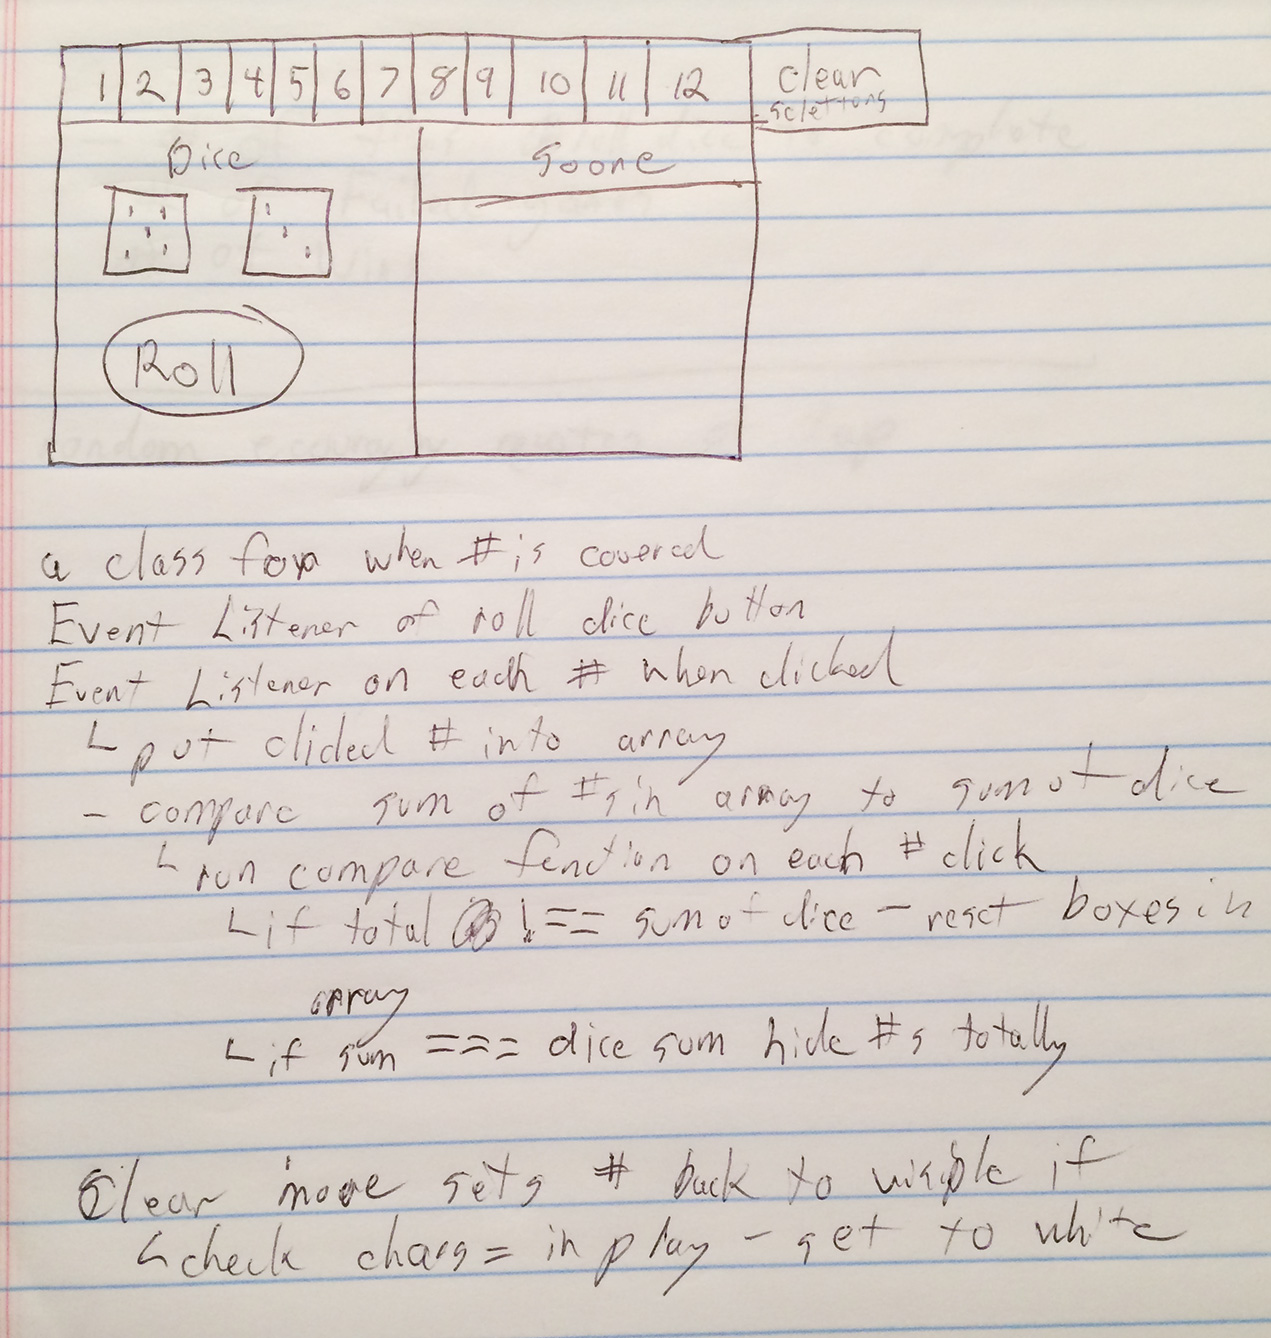 1 2 3 4 5 6 7 8 9 10 11 12 clear
selettions
Dice Soore
Roll
a class for when # is covered
Event Listener of roll dice button
Event Listener on each # when clicked
└ put clicled # into array
- compare sum of #s in array to sum of dice
└ run compare fenction on each # click
└ if total !== sum of dice - reset boxes in
array
└ if sum === dice sum hide #s totally
Clear move sets # back to visible if
└ check = in play - set to white